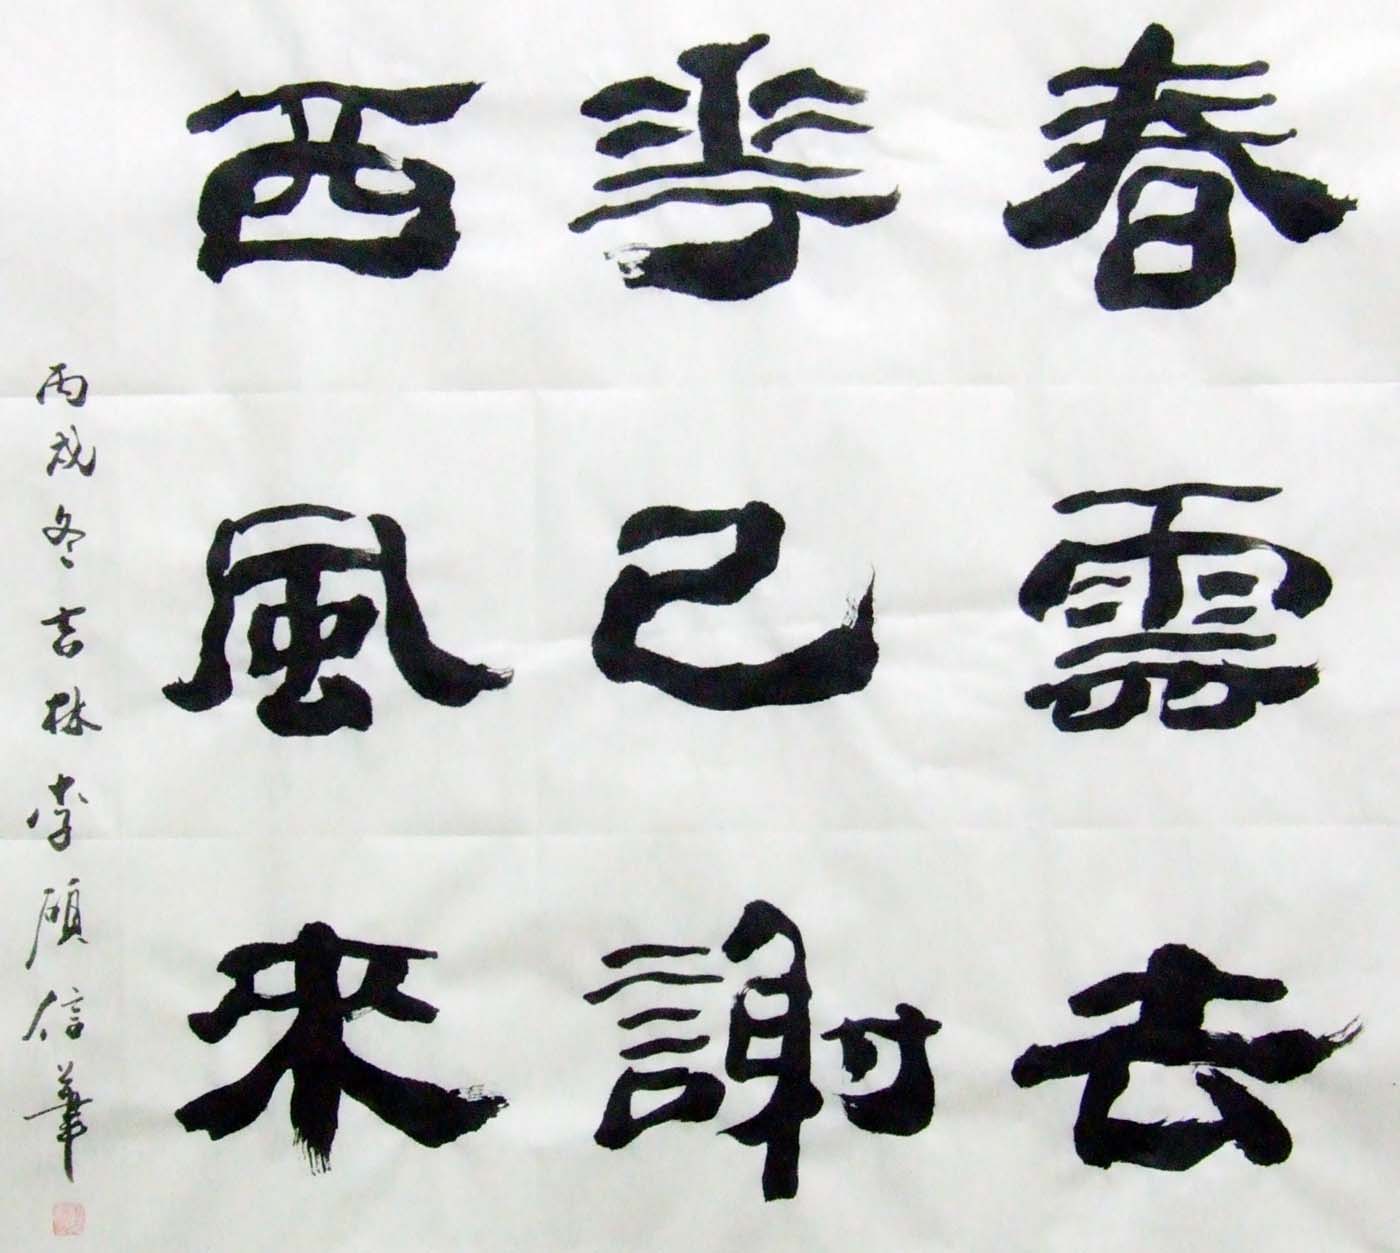 春雲去
華己謝
西風來
丙戌冬吉林李碩信筆